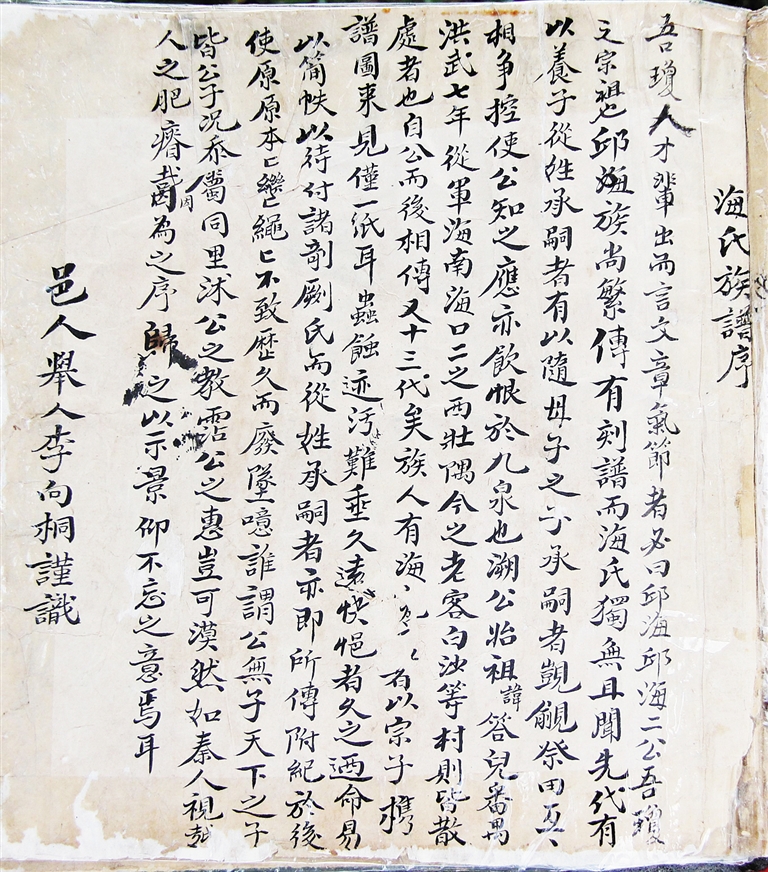 海氏族譜序
吾瓊人才輩出而言文章氣節者必曰邱海邱海二公吾瓊
之宗祖也邱海族尚繁傳有刻譜而海氏獨無且聞先代有
以養子從姓承嗣者有以隨母子之子承嗣者覬覦祭田互
相爭控使公知之應亦飲恨於九泉也溯公始祖諱答兒番禺
洪武七年從軍海南海口二之西壯隅今之老客白沙等村則皆散
處者也自公而後相傳又十三代矣族人有海 者以宗子携
譜圖來見僅一紙耳蟲蝕迹汚難垂久遠怏悒者久之迺命易
以簡帙以待付諸剞劂氏而從姓承嗣者亦即所傳附紀於後
使原原本匕繼匕繩匕不致歷久而廢墜噫誰謂公無子天下之子
皆公子況忝屬同里沭公之教霑公之惠豈可漠然如秦人視越
人之肥瘠哉因為之序歸之以示景仰不忘之意焉耳
邑人舉人李向桐謹識